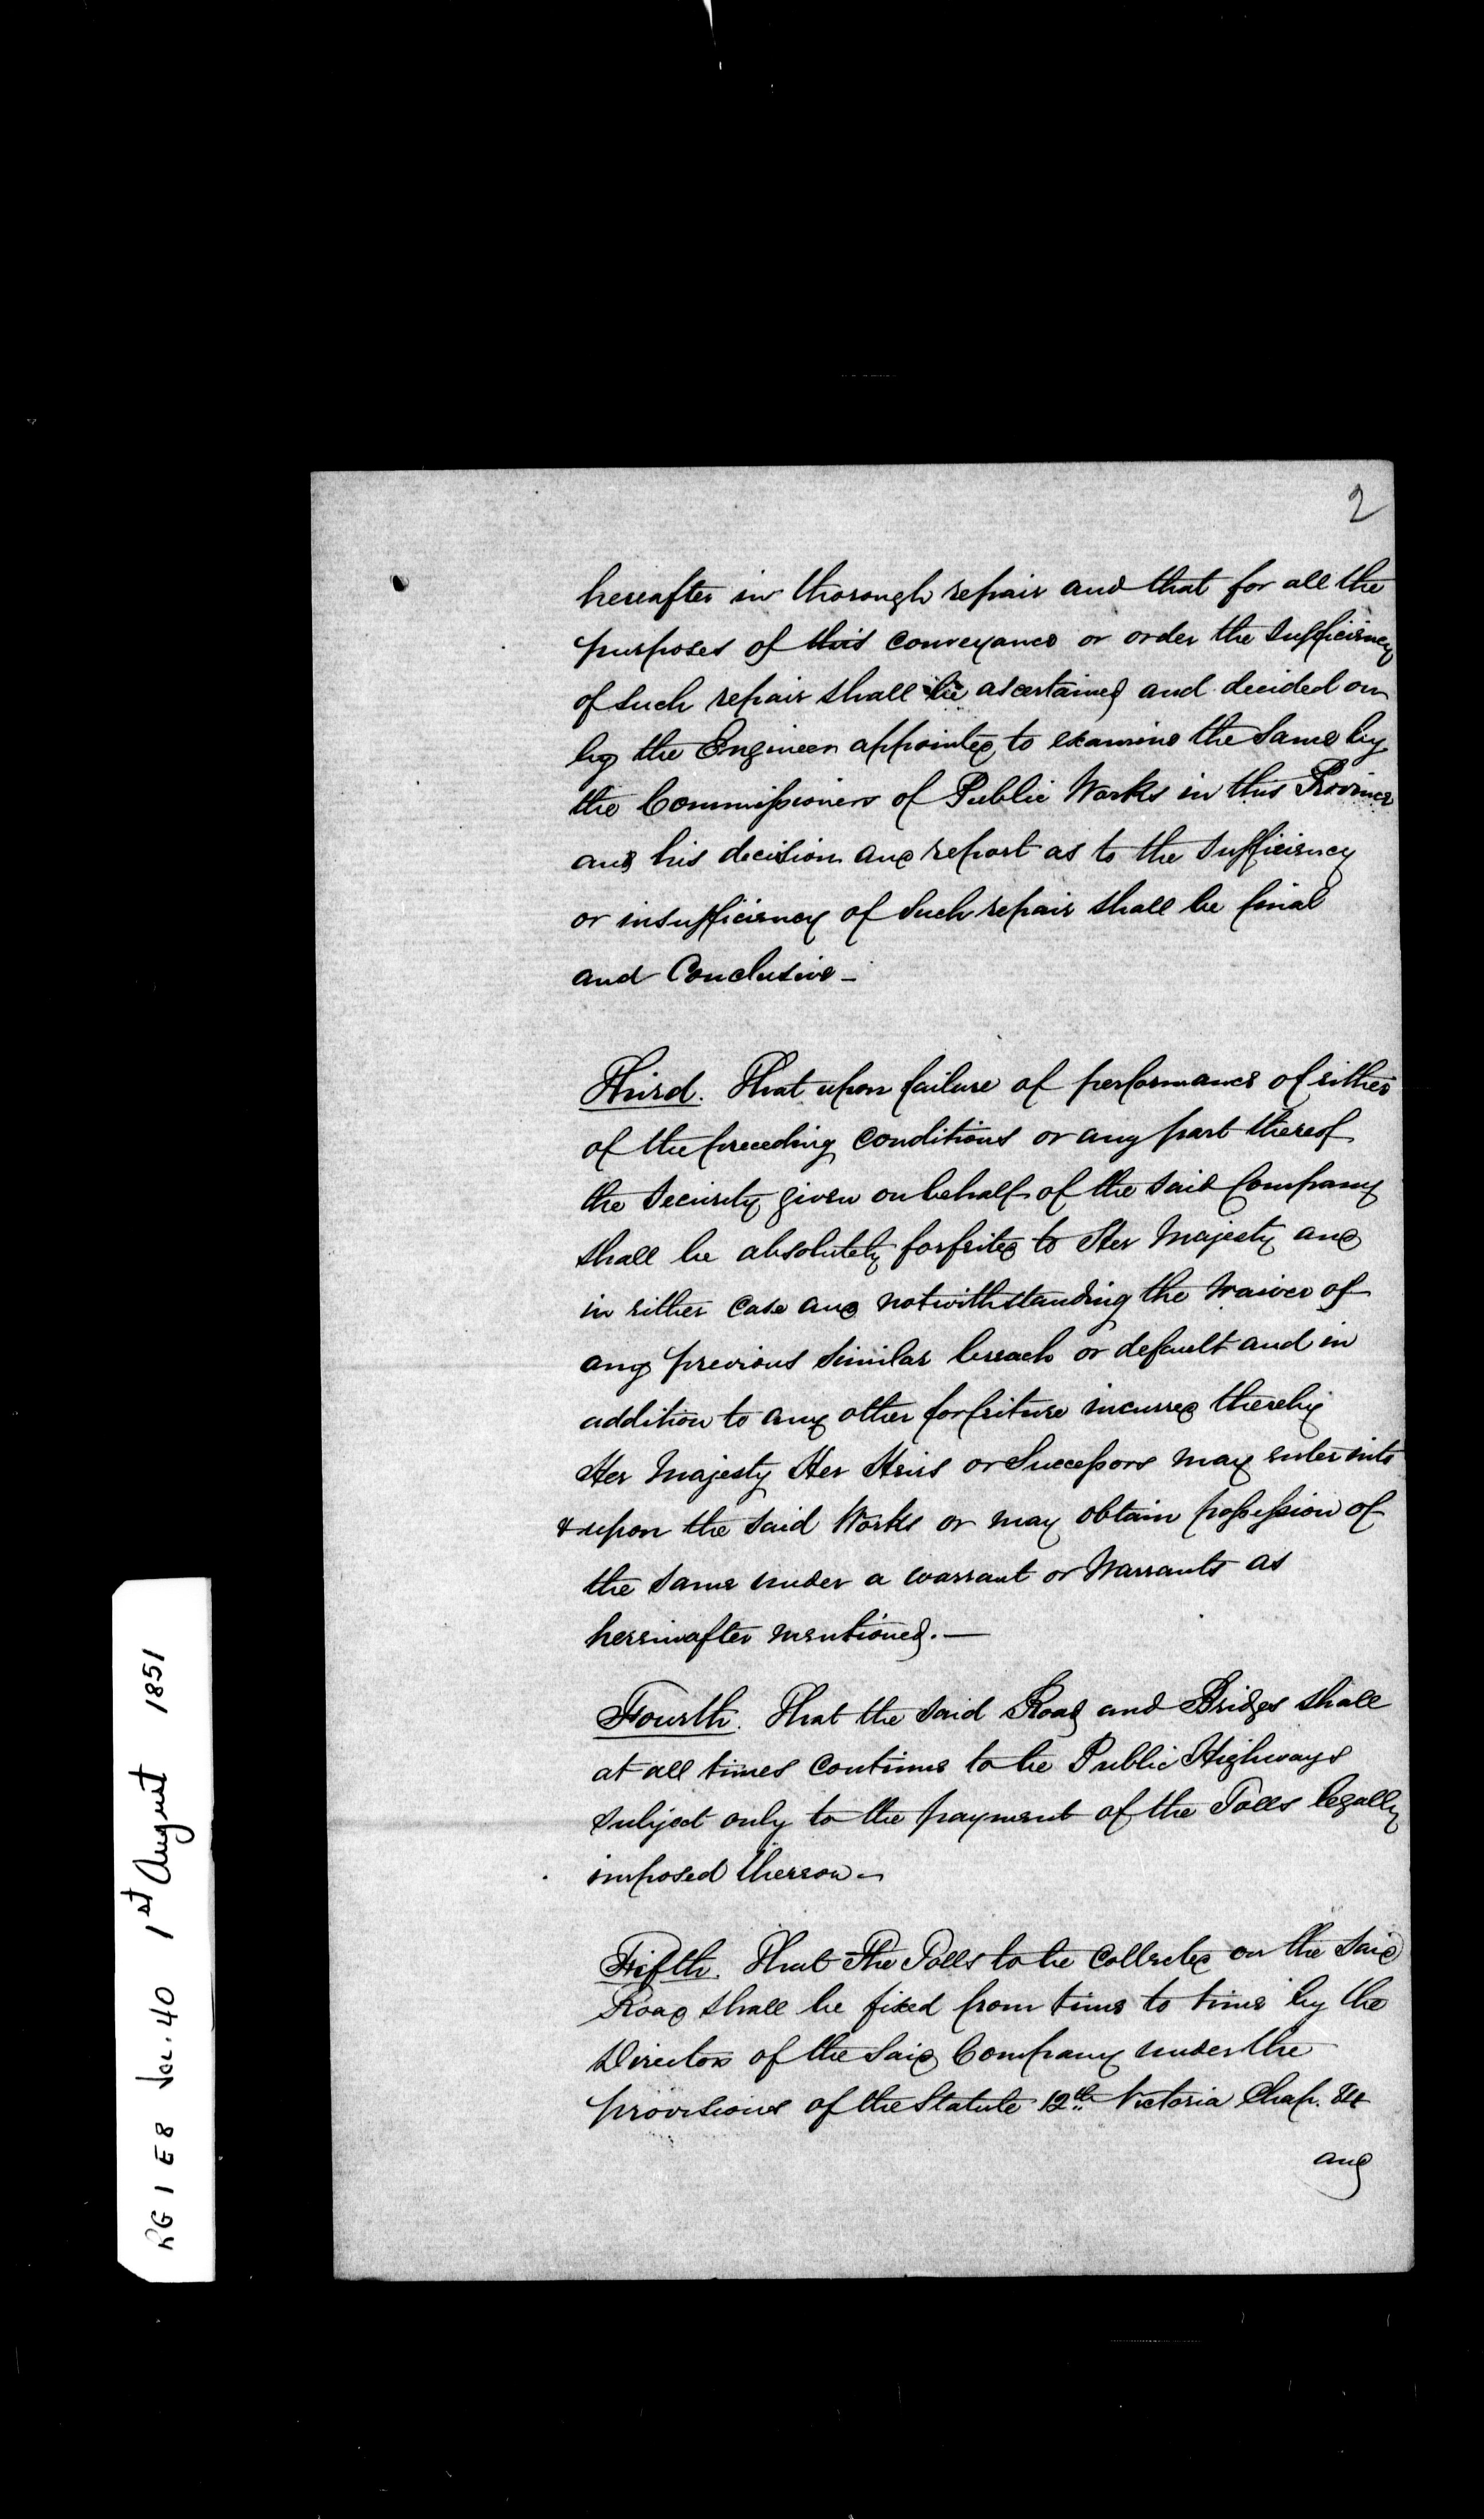 2
hereafter in thorough repair and that for all the
purposes of this conveyance or order the sufficiency
of such repair shall be ascertained and decided on
by the Engineer appointed to examine the same by
the Commissioners of Public Works in this Province
and his decision and report as to the sufficiency
or insufficiency of such repair shall be final
and Conclusive –
Third. That upon failure of performance of either
of the preceding conditions or any part thereof
the Security given on behalf of the said Company
shall be absolutely forfeited to Her Majesty and
in either case and notwithstanding the Waiver of
any previous similar breach or default and in
addition to any other forfeiture incurred thereby
Her Majesty Her Heirs or Successors may enter into
& upon the said Works or may obtain possession of
the same under a warrant or Warrants as
hereinafter mentioned. —
Fourth. That the said Road and Bridges shall
at all times continue to be Public Highways
subject only to the payment of the Tolls legally
imposed thereon –
Fifth. That The Tolls to be collected on the said
Road shall be fixed from time to time by the
Directors of the said Company under the
provisions of the Statute 12th Victoria Chap.
and
RG 1 E8 Vol. 40 1st August 1851